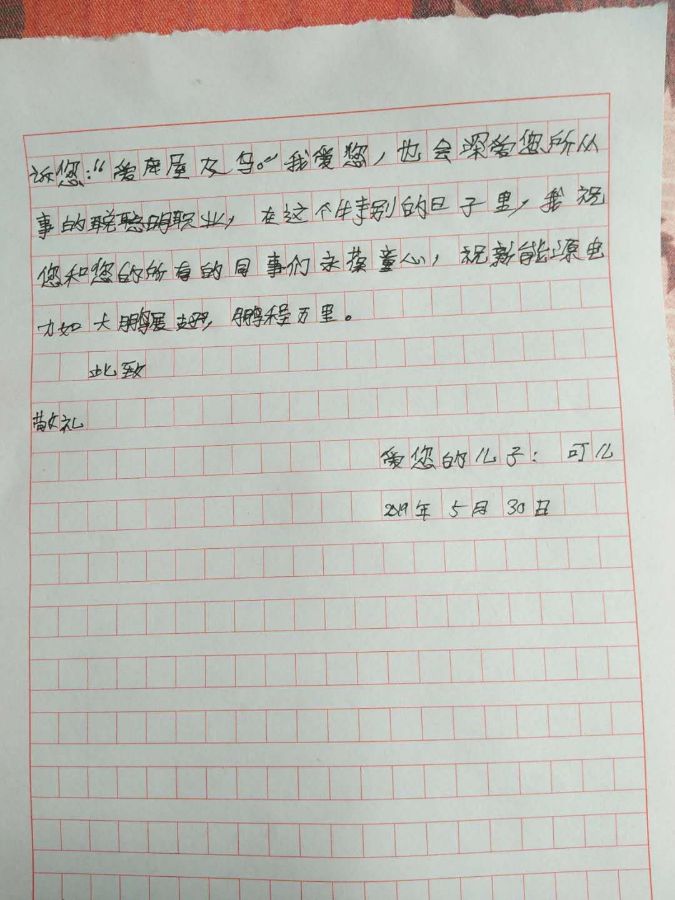 诉您：“爱屋及乌。”我爱您，也会深爱您所从
事的职业，在这个特别的日子里，我祝
您和您的所有的同事们永葆童心，祝新能源电
力如大鹏展翅，鹏程万里。
此致
敬礼
爱您的儿子：可儿
2019年5月30日